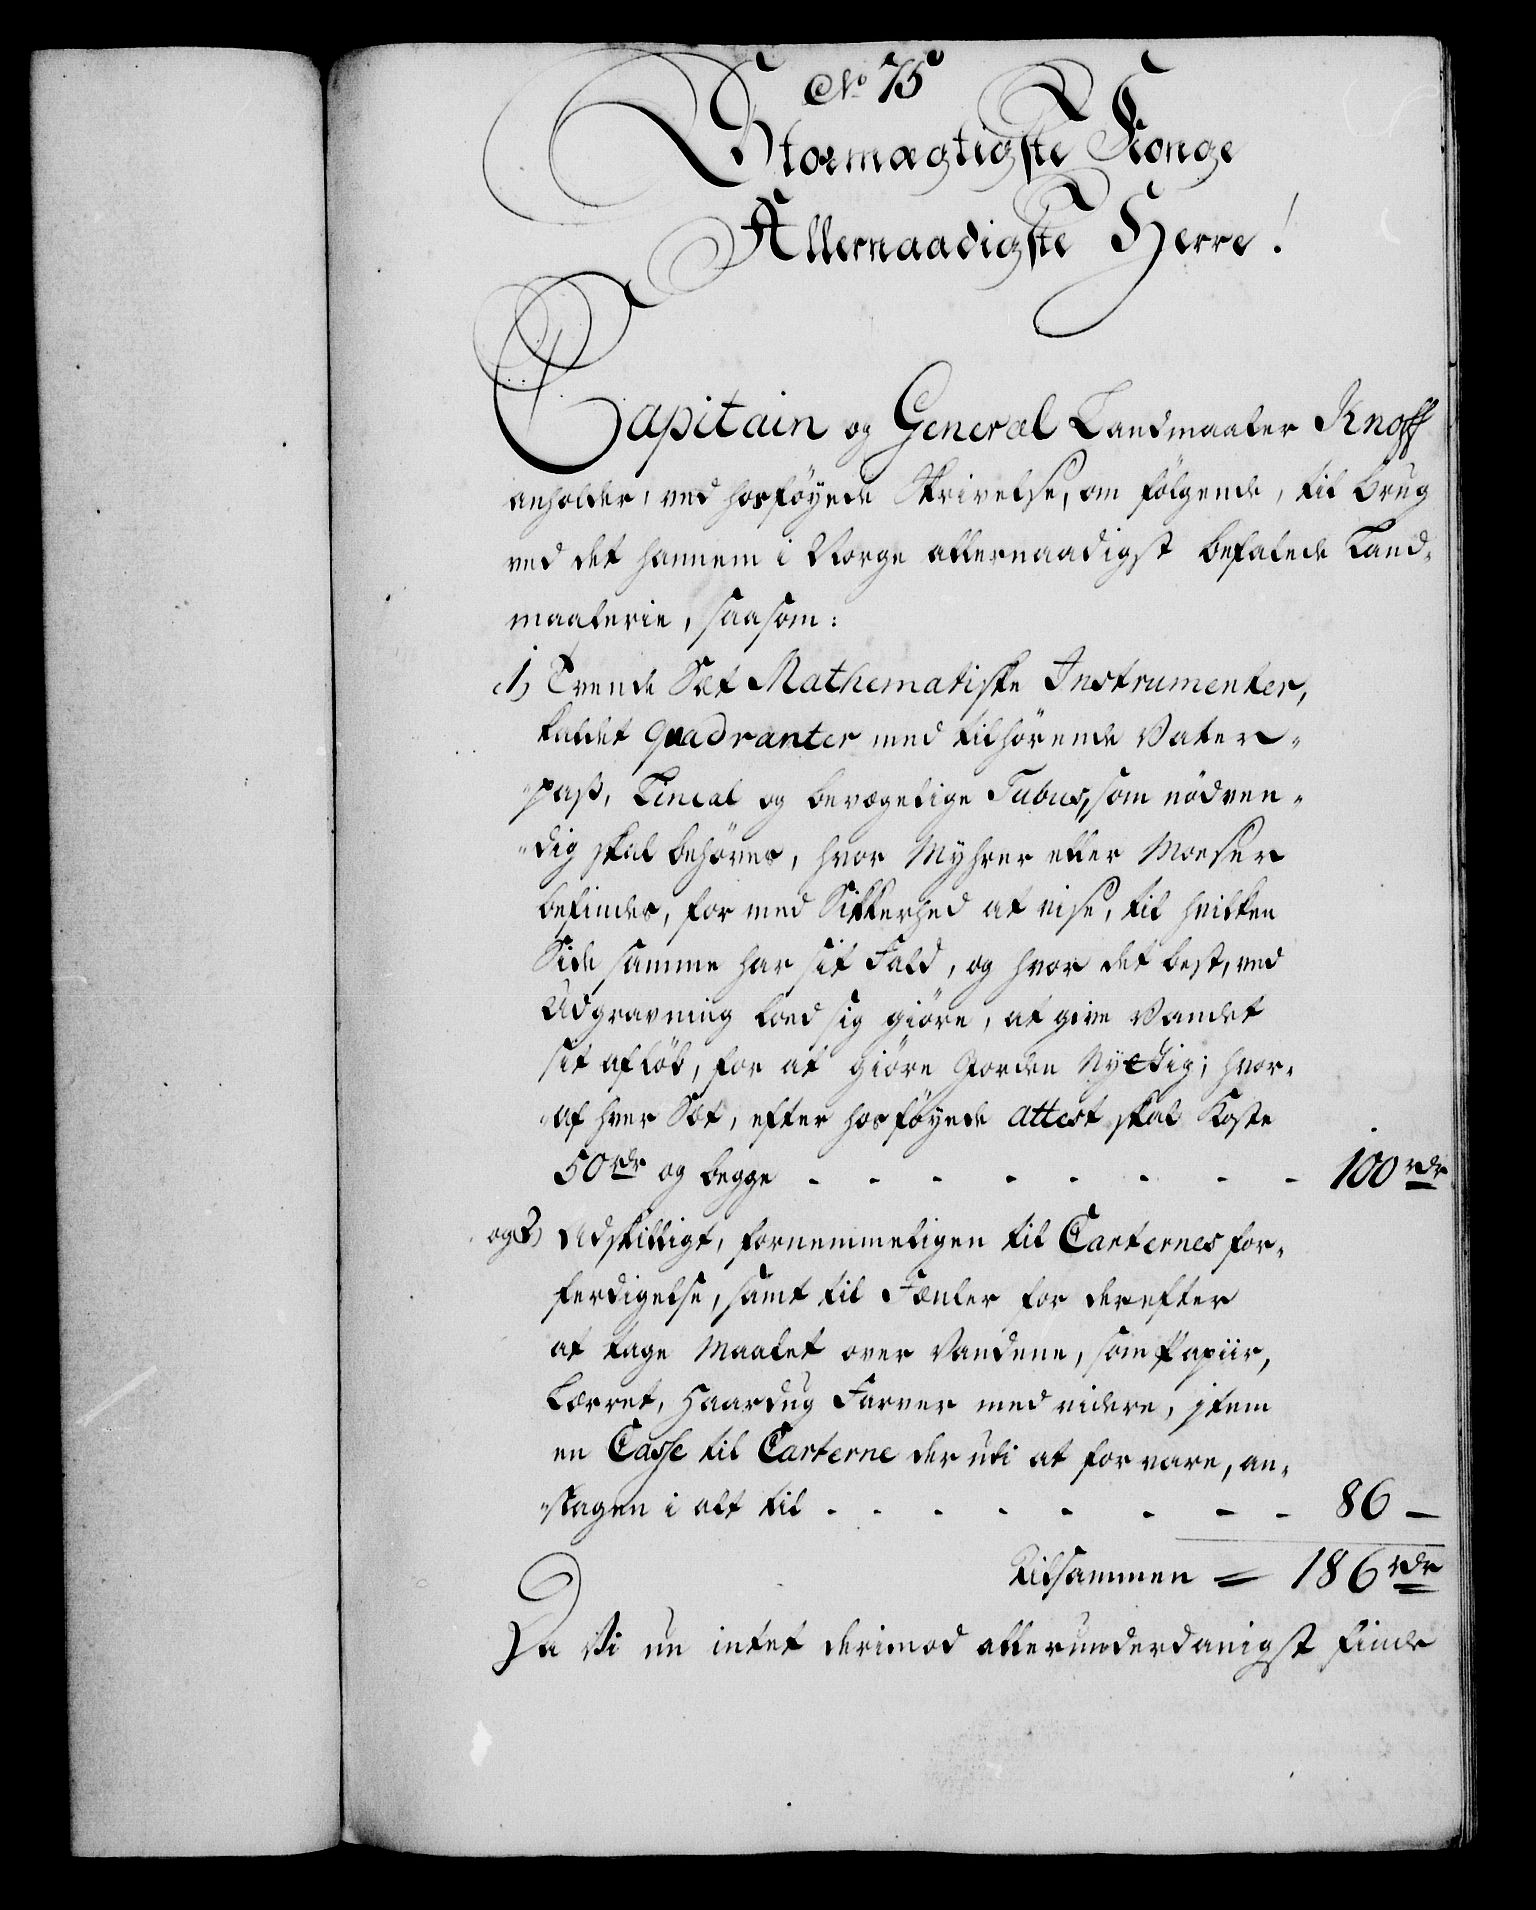 No 75
Stormægtigste Konge
Allernaadigste Herre!
Capitain og General Landmaaler Knoff
anholder, ved hosföyede Skrivelse, om fölgende, til brug
ved det hannem i Norge allernaadigst befalede Land-
maalerie, saasom:
1, Tvende Sæt Mathematiske Instrumenter,
kaldet Quadranter med tilhörende Vater-
"pass, Lineal og bevægelige Tubus, som nödven-
"dig skal behöves, hvor Myhrer eller Moeser
befindes, for med Sikkerhed at vise, til hvilken
Side samme har sit Fald, og hvor det best, ved
Udgravning loed sig giöre, at give Vandet
sit aflöb, for at giöre Jorden Nyttig; hvor-
af hver Sæt, efter hosföyede attest skal Koste
50 rdr og begge - - - - - - - - 100 rdr
og 2, Adskilligt, fornemmeligen til Carternes for-
ferdigelse, samt til Fæuler for derefter
at tage Maalet over Vandene, som Papiir,
Lærret, Haardug Farver med videre, item
en Casse til Carterne der udi at forvare, an-
"slagen i alt til - - - - - - - - 86 -
Tilsammen = 186 rdr
Da Vi nu intet derimod allerunderdanigst finde